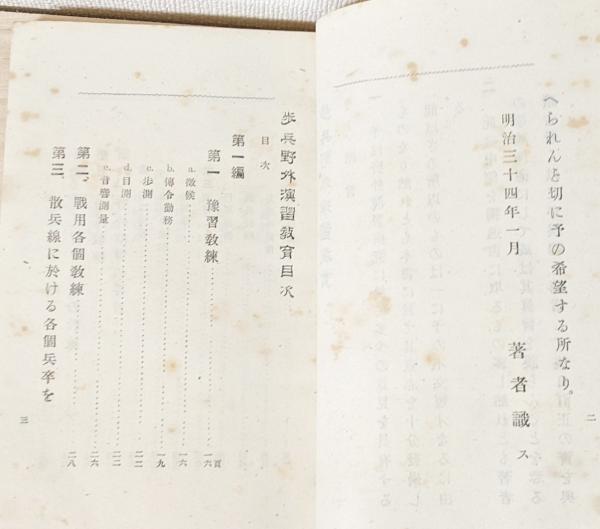 へられんを切に予の希望する所なり。
明治三十四年一月
著者識ス
二
歩兵野外演習教育目次
目次
第一編
第一 豫習教練 頁 一六
a. 徴候 一六
b. 傳令勤務 一九
c. 歩測 二二
d. 目測 二二
e. 音響測量 二六
第二、 戰用各個教練 二八
第三、 散兵線に於ける各個兵卒を
三